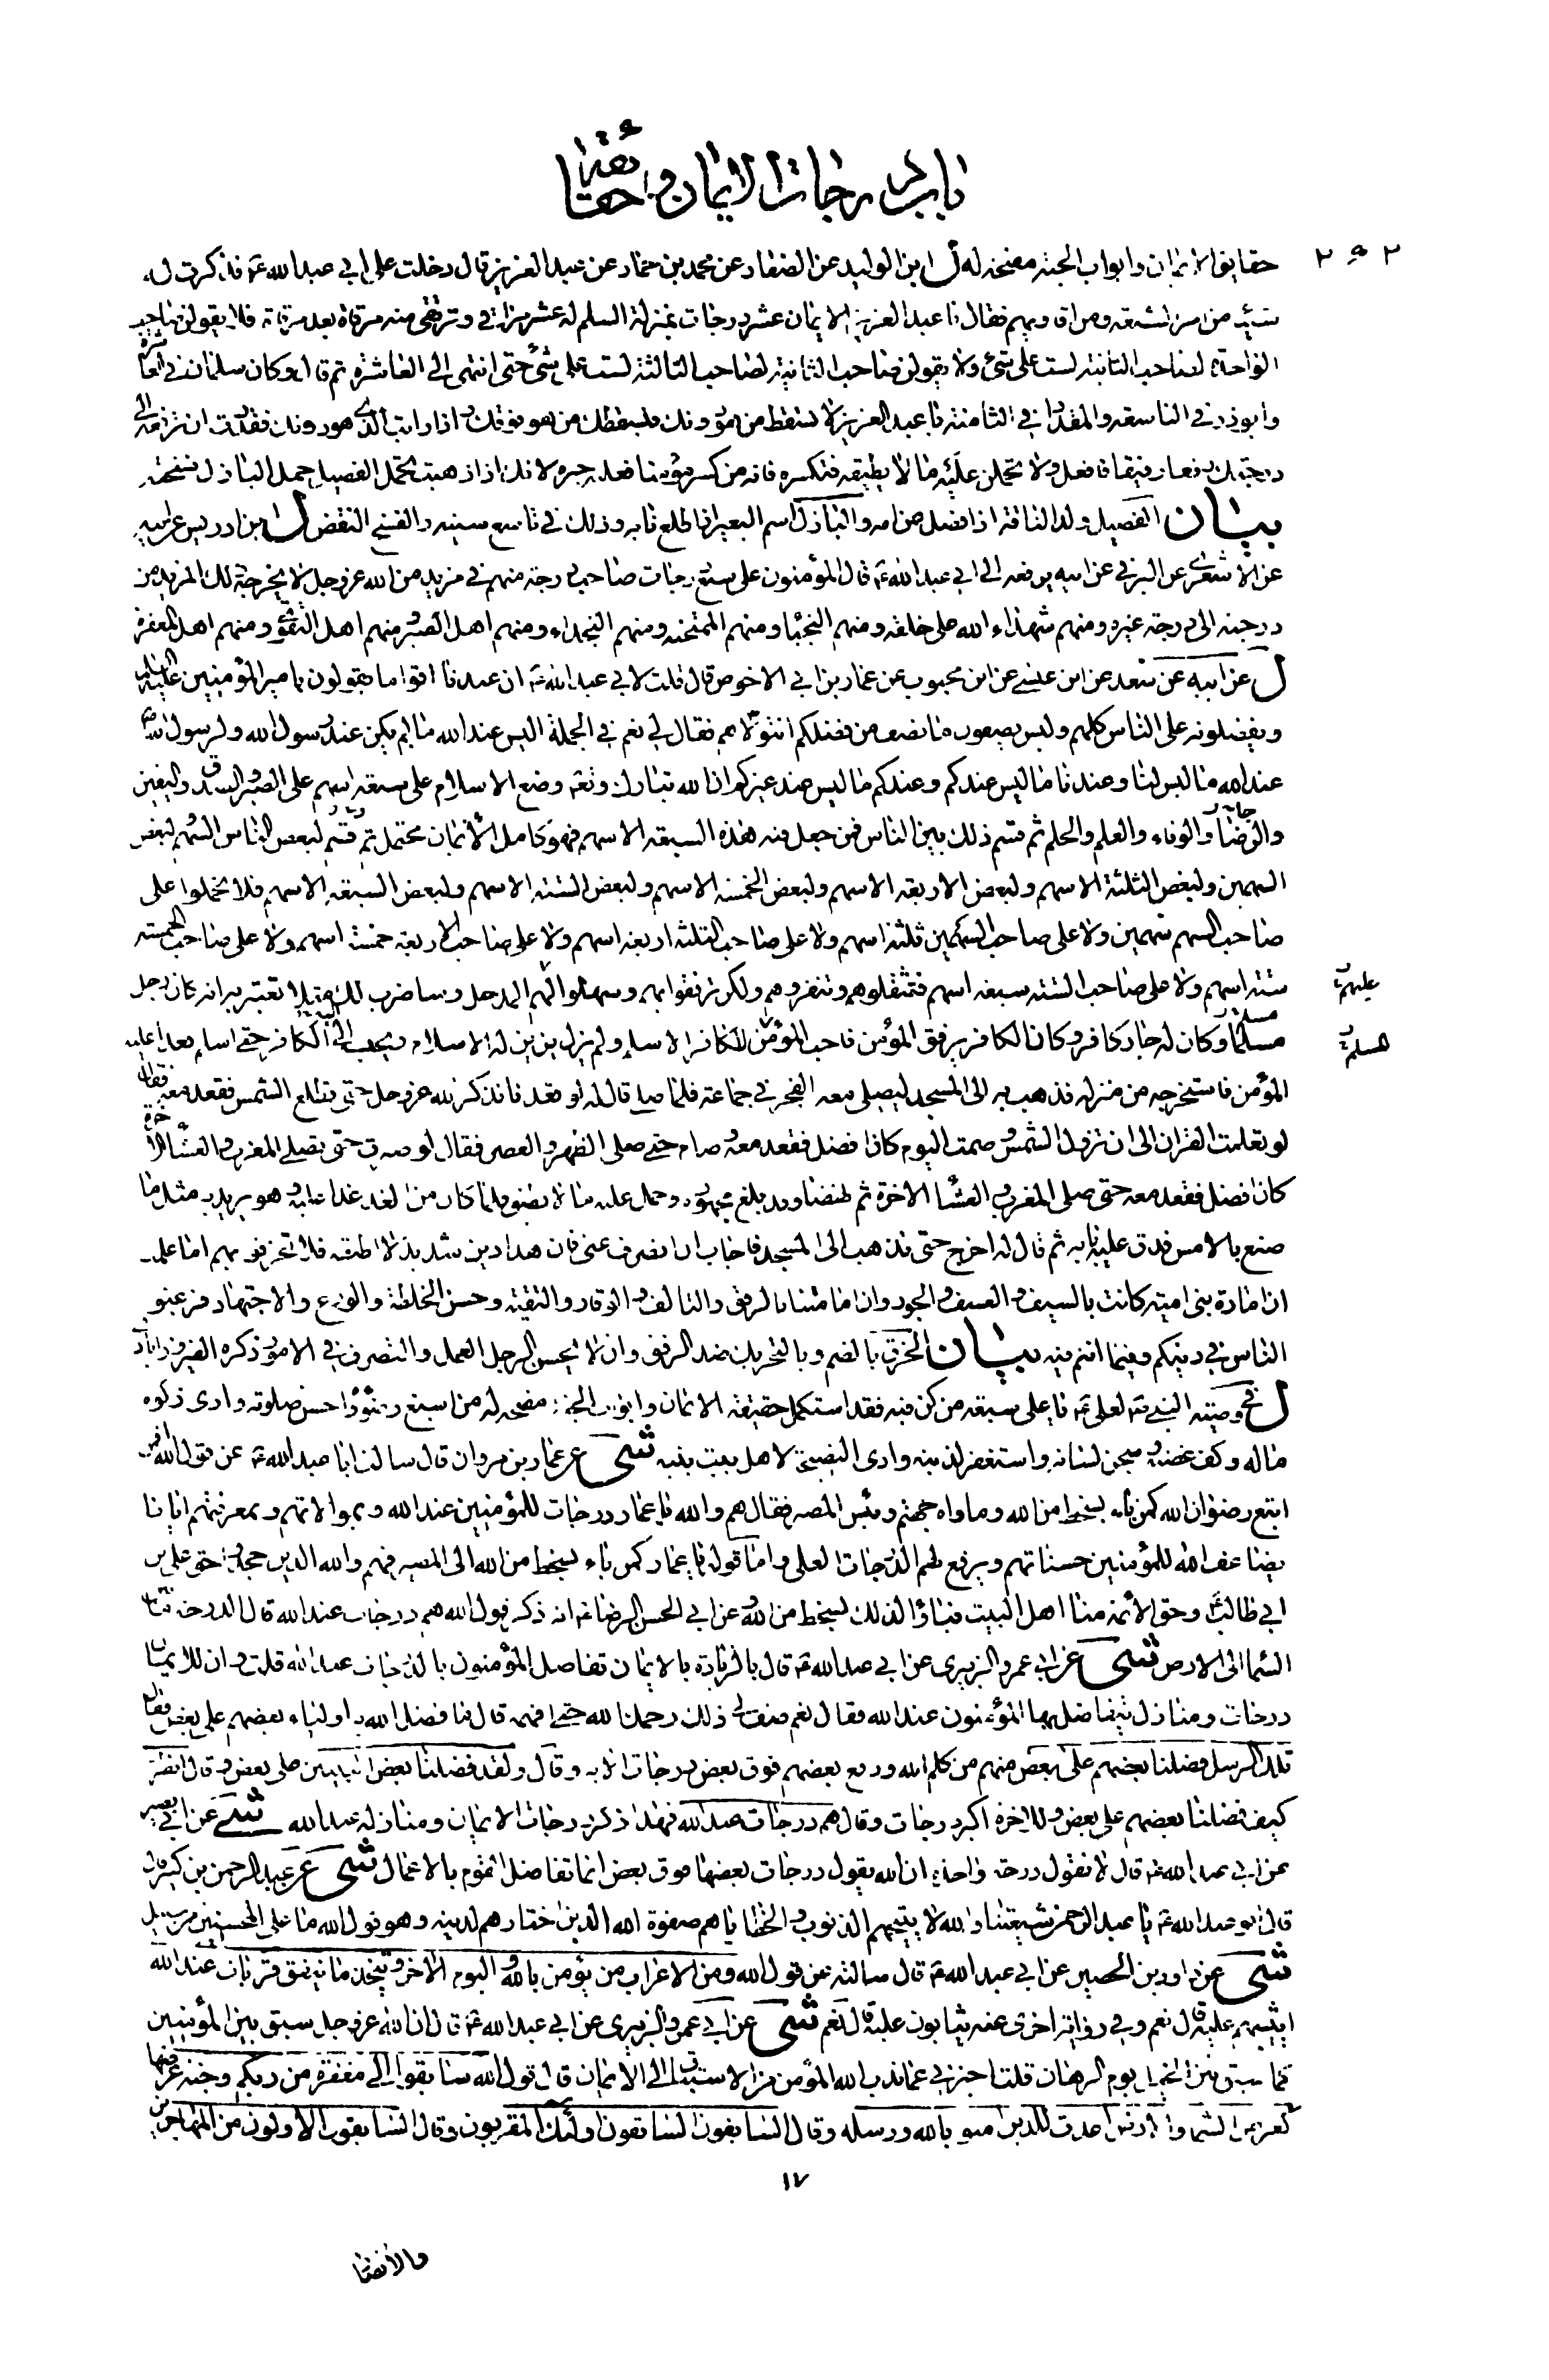 باب درجات الايمان وحقائقه
حقايق الايمان وابواب الجنة مفتحة له ل ابن الوليد عن الصفار عن محمد بن حماد عن عبد العزيز قال دخلت على ابي عبد الله ع فذكرت له
شيئا من امر الشيعة ومن اقاويلهم فقال يا عبد العزيز الايمان عشر درجات بمنزلة السلم له عشر مراقي وترتقى منه مرقاة بعد مرقاة فلا يقولن صاحب
الواحدة لصاحب الثانية لست على شئ ولا يقولن صاحب الثانية لصاحب الثالثة لست على شئ حتى انتهى الى العاشرة ثم قال وكان سلمان في العاشرة
وابوذر في التاسعة والمقداد في الثامنة يا عبد العزيز لا تسقط من هو دونك فيسقطك من هو فوقك اذا رايت الذي هو دونك فقدرت ان ترفعه الى
درجتك رفعا رفيقا فافعل ولا تحملن عليه ما لا يطيقه فتكسره فانه من كسر مؤمنا فعليه جبره لانك اذا ذهبت تحمل الفصيل حمل البازل فسخته
بيان الفصيل ولد الناقة اذا فصل من امه والبازل اسم البعير اذا طلع نابه وذلك في تاسع سنيه والفسخ النقض ل ابن ادريس عن ابيه
عن الاشعري عن البرقي عن ابيه يرفعه الى ابي عبد الله ع قال المؤمنون على سبع درجات صاحب درجة منهم في مزيد من الله عز وجل لا يخرجه ذلك المزيد من
درجته الى درجة غيره ومنهم شهداء الله على خلقه ومنهم النجبا ومنهم الممتحنة ومنهم النجداء ومنهم اهل الصبر ومنهم اهل التقوى ومنهم اهل المغفرة
ل عن ابيه عن سعد عن ابن عيسى عن ابن محبوب عن عمار بن ابي الاحوص قال قلت لابي عبد الله ع ان عندنا اقواما يقولون بامير المؤمنين عليه السلم
ويفضلونه على الناس كلهم وليس يصفون ما نصف من فضلكم انتولاهم فقال لي نعم في الجملة اليس عند الله ما لم يكن عند رسول الله ولرسول الله
عند الله ما ليس لنا وعندنا ما ليس عندكم وعندكم ما ليس عند غيركم ان الله تبارك وتع وضع الاسلام على سبعة اسهم على الصبر والصدق واليقين
والرضا والوفاء والعلم والحلم ثم قسم ذلك بين الناس فمن جعل فيه هذه السبعة الاسهم فهو كامل الايمان محتمل ثم قسم لبعض الناس السهم لبعض
السهمين ولبعض الثلثة الاسهم ولبعض الاربعة الاسهم ولبعض الخمسة الاسهم ولبعض الستة الاسهم ولبعض السبعة الاسهم فلا تحملوا على
صاحب السهم سهمين ولا على صاحب السهمين ثلثة اسهم ولا على صاحب الثلثة اربعة اسهم ولا على صاحب الاربعة خمسة اسهم ولا على صاحب الخمسة
ستة اسهم ولا على صاحب الستة سبعة اسهم فتثقلوهم وتنفروهم ولكن ترفقوا بهم وسهلوا لهم المدخل وساضرب لك مثلا تعتبر به انه كان رجل
عليهم
مسلما وكان له جار كافر وكان الكافر يرفق المؤمن فاحب المؤمن للكافر الاسلام ولم يزل يزين له الاسلام ويحببه الى الكافر حتى اسلم فغدا عليه
المسلم
المؤمن فاستخرجه من منزله فذهب به الى المسجد ليصلي معه الفجر في جماعة فلما صلى قال له لو قعدنا نذكر الله عز وجل حتى تطلع الشمس فقعد معه فقال
لو تعلمت القران الى ان تزول الشمس وصمت اليوم كان افضل فقعد معه وصام حتى صلى الظهر والعصر فقال لو صبرت حتى تصلى المغرب والعشاء الاخرة
كان افضل فقعد معه حتى صلى المغرب والعشا الاخرة ثم نهضا وقد بلغ مجهوده وحمل عليه ما لا يطيق فلما كان من الغد غدا عليه وهو يريد به مثل ما
صنع بالامس فدق عليه بابه ثم قال له اخرج حتى نذهب الى المسجد فاجابه ان انصرف عني فان هذا دين شديد لا اطيقه فلا تخرقوا بهم اما علمت
ان امارة بني امية كانت بالسيف والعسف والجور وان امامتنا بالرفق والتالف والوقار والتقية وحسن الخلطة والورع والاجتهاد فرغبوا
الناس في دينكم وفيما انتم فيه بيان الخرق بالضم وبالتحريك ضد الرفق وان لا يحسن الرجل العمل والتصرف في الامور ذكره الفيروزابادي
ل في وصية النبي ص لعلي ع يا علي سبعة من كن فيه فقد استكمل حقيقة الايمان وابواب الجنة مفتحة له من اسبغ وضوءه واحسن صلوته وادى زكوة
ماله وكف غضبه وسجن لسانه واستغفر لذنبه وادى النصيحة لاهل بيت نبيه شى عن عمار بن مروان قال سالت ابا عبد الله ع عن قول الله افمن
اتبع رضوان الله كمن باء بسخط من الله وماواه جهنم وبئس المصير فقال هم والله يا عمار درجات للمؤمنين عند الله وبموالاتهم وبمعرفتهم ايانا
يضاعف الله للمؤمنين حسناتهم ويرفع لهم الدرجات العلى واما قوله يا عمار كمن باء بسخط من الله الى المصير فهم والله الذين جحدوا حق علي بن
ابي طالب وحق الائمة منا اهل البيت فباؤا لذلك بسخط من الله وعن ابي الحسن الرضا ع انه ذكر قول الله هم درجات عند الله قال الدرجة ما بين
السما الى الارض شى عن ابي عمرو الزبيري عن ابي عبد الله ع قال بالزيادة بالايمان تفاضل المؤمنون بالدرجات عند الله قلت وان للايمان
درجات ومنازل يتفاضل بها المؤمنون عند الله فقال نعم قلت صف لي ذلك رحمك الله حتى افهمه قال ما فضل الله به اولياءه بعضهم على بعض فقال
تلك الرسل فضلنا بعضهم على بعض منهم من كلم الله ورفع بعضهم فوق بعض درجات الاية وقال ولقد فضلنا بعض النبيين على بعض وقال انظر
كيف فضلنا بعضهم على بعض وللاخرة اكبر درجات وقال هم درجات عند الله فهذا ذكر درجات الايمان ومنازله عند الله شى عن ابي بصير
عن ابي عبد الله ع قال لا نقول درجة واحدة ان الله يقول درجات بعضها فوق بعض انما تفاضل القوم بالاعمال شى عن عبد الرحمن بن كثير قال
قال ابو عبد الله ع يا عبد الرحمن شيعتنا والله لا يتيهم الذنوب والخطايا هم صفوة الله الذين اختارهم لدينه وهو قول الله ما على المحسنين من سبيل
شى عن داود بن الحصين عن ابي عبد الله ع قال سالته عن قول الله ومن الاعراب من يؤمن بالله واليوم الاخر ويتخذ ما ينفق قربات عند الله
ايثيبهم عليه قال نعم وفي رواية اخرى عنه يثابون عليه قال نعم شى عن ابي عمرو الزبيري عن ابي عبد الله ع قال ان الله عز وجل سبق بين المؤمنين
كما سبق بين الخيل يوم الرهان قلت اخبرني عما ندب الله المؤمن من الاستباق الى الايمان قال قول الله سابقوا الى مغفرة من ربكم وجنة عرضها
كعرض السماء والارض اعدت للذين امنوا بالله ورسله وقال السابقون السابقون اولئك المقربون وقال السابقون الاولون من المهاجرين
١٧
والانصار